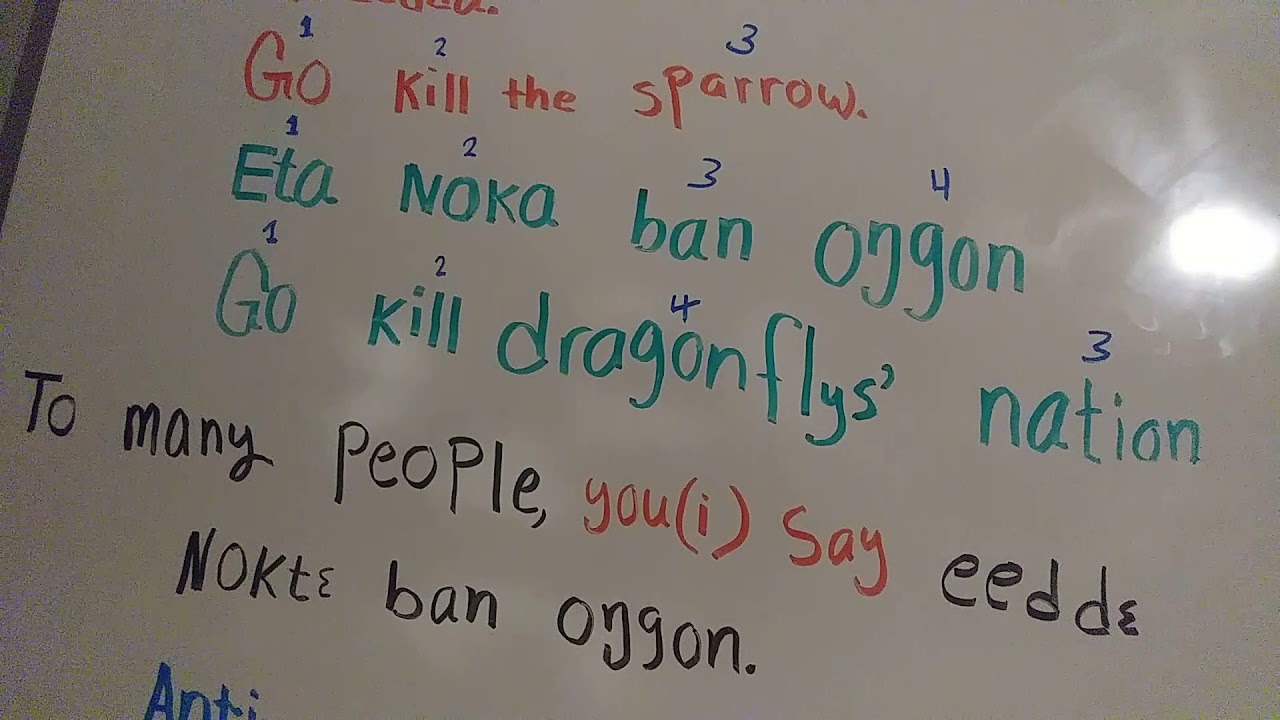 1 2 3
Go Kill the sparrow.
1 2 3 4
Eta Noka ban oŋgon
1 2 4 3
Go Kill dragonflys' nation
To many People, you(i) Say eeddɛ
Noktɛ ban oŋgon.
Anti